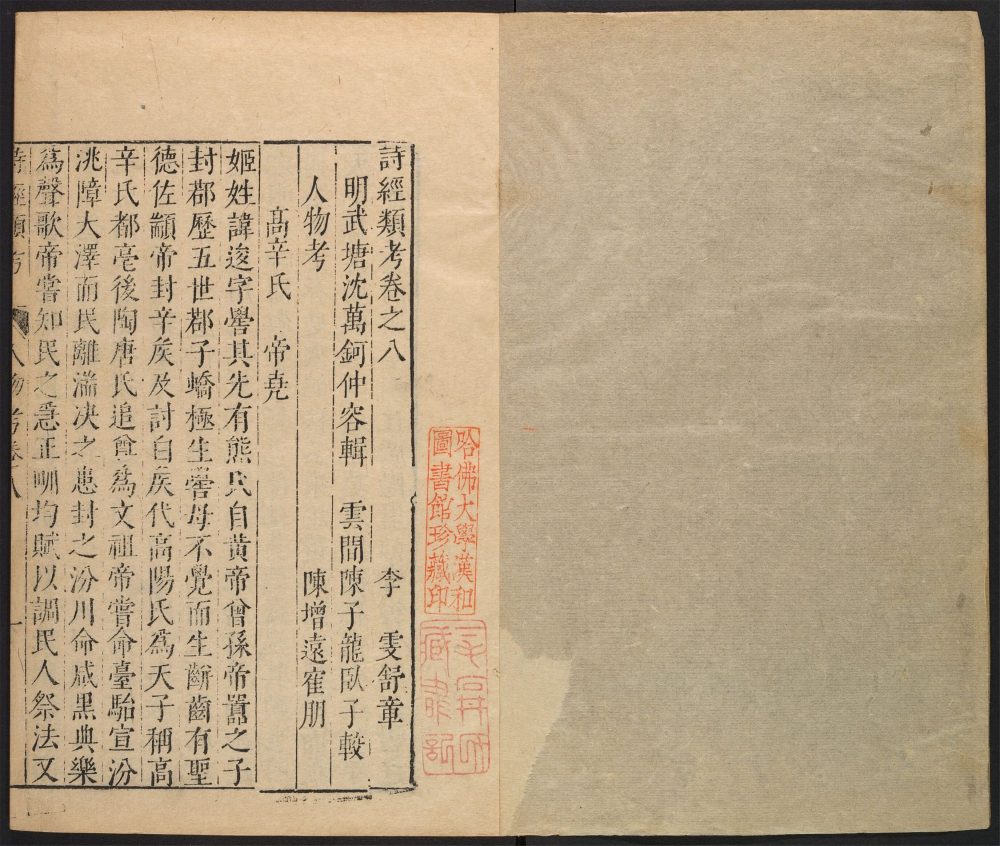 詩經類考卷之八
李 雯舒章
明武塘沈萬鈳仲容輯 雲間陳子龍臥子較
人物考 陳增遠隺朋
高辛氏 帝堯
姬姓諱逡字嚳其先有熊氏自黄帝曾孫帝嚚之子
封鄀歷五世鄀子蟜極生嚳母不覺而生齠齒有聖
德佐顓帝封辛矦及討自矦代高陽氏爲天子稱高
辛氏都亳後陶唐氏追尊爲文祖帝嘗命臺駘宣汾
洮障大澤而民離滛决之患封之汾川命咸黑典樂
爲聲歌帝嘗知民之急正畎均賦以調民人祭法又
詩經類考 人物考卷八 一
哈佛大學漢和
圖書館珍藏印
藏書記